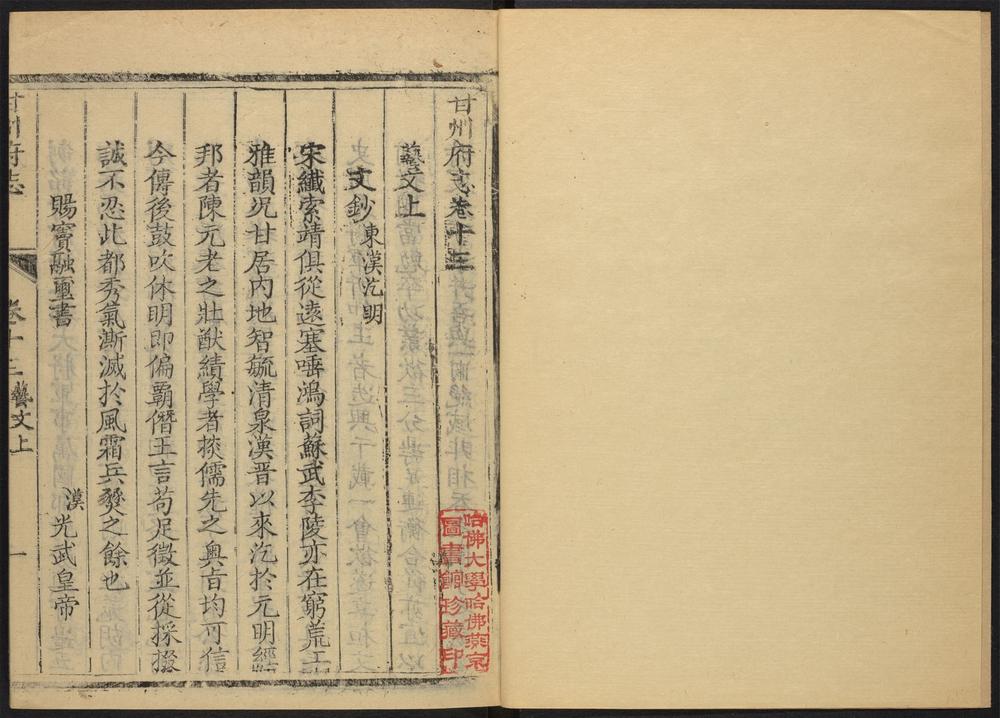 甘州府志卷十三
藝文上
文鈔 東漢訖明
宋纖索靖俱從遠塞唾鴻詞蘇武李陵亦在窮荒工
雅韻况甘居内地智毓清泉漢晉以來訖於元明經
邦者陳元老之壯猷績學者掞儒先之奥旨均可信
今傳後鼓吹休明即偏霸僭王言苟足徵並從採掇
誠不忍此都秀氣澌滅於風霜兵燹之餘也
賜竇融璽書 漢光武皇帝
甘州府志 卷十三 藝文上 一
哈佛大學哈佛燕京
圖書館珍藏印